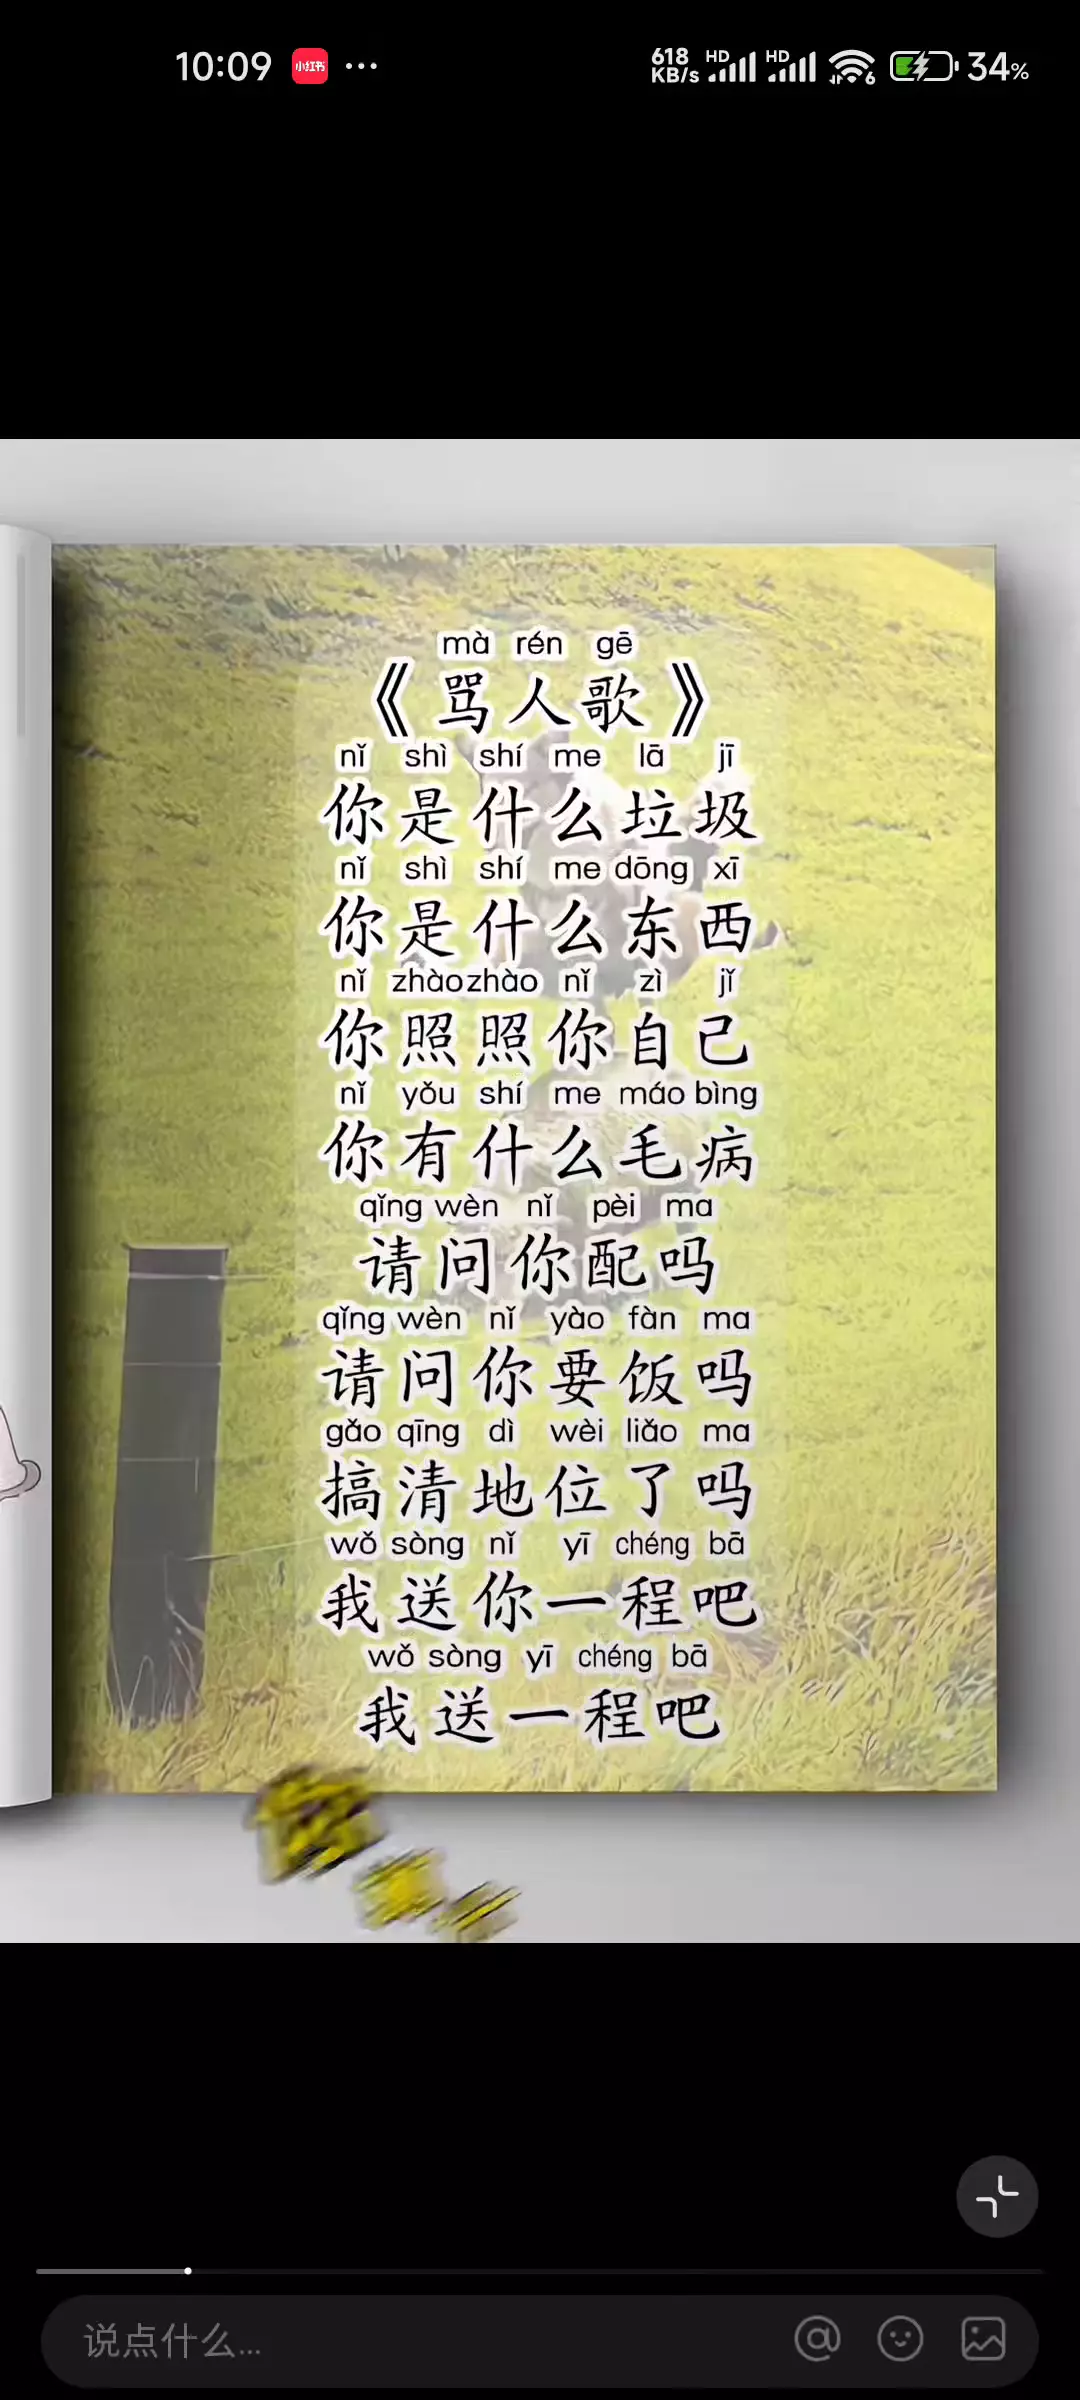 10:09 小红书 ...
618 KB/s HD HD 6 34%
mà rén gē
《骂人歌》
nǐ shì shí me lā jī
你是什么垃圾
nǐ shì shí me dōng xī
你是什么东西
nǐ zhào zhào nǐ zì jǐ
你照照你自己
nǐ yǒu shí me máo bìng
你有什么毛病
qǐng wèn nǐ pèi ma
请问你配吗
qǐng wèn nǐ yào fàn ma
请问你要饭吗
gǎo qīng dì wèi liǎo ma
搞清地位了吗
wǒ sòng nǐ yī chéng bā
我送你一程吧
wǒ sòng yī chéng bā
我送一程吧
说点什么...